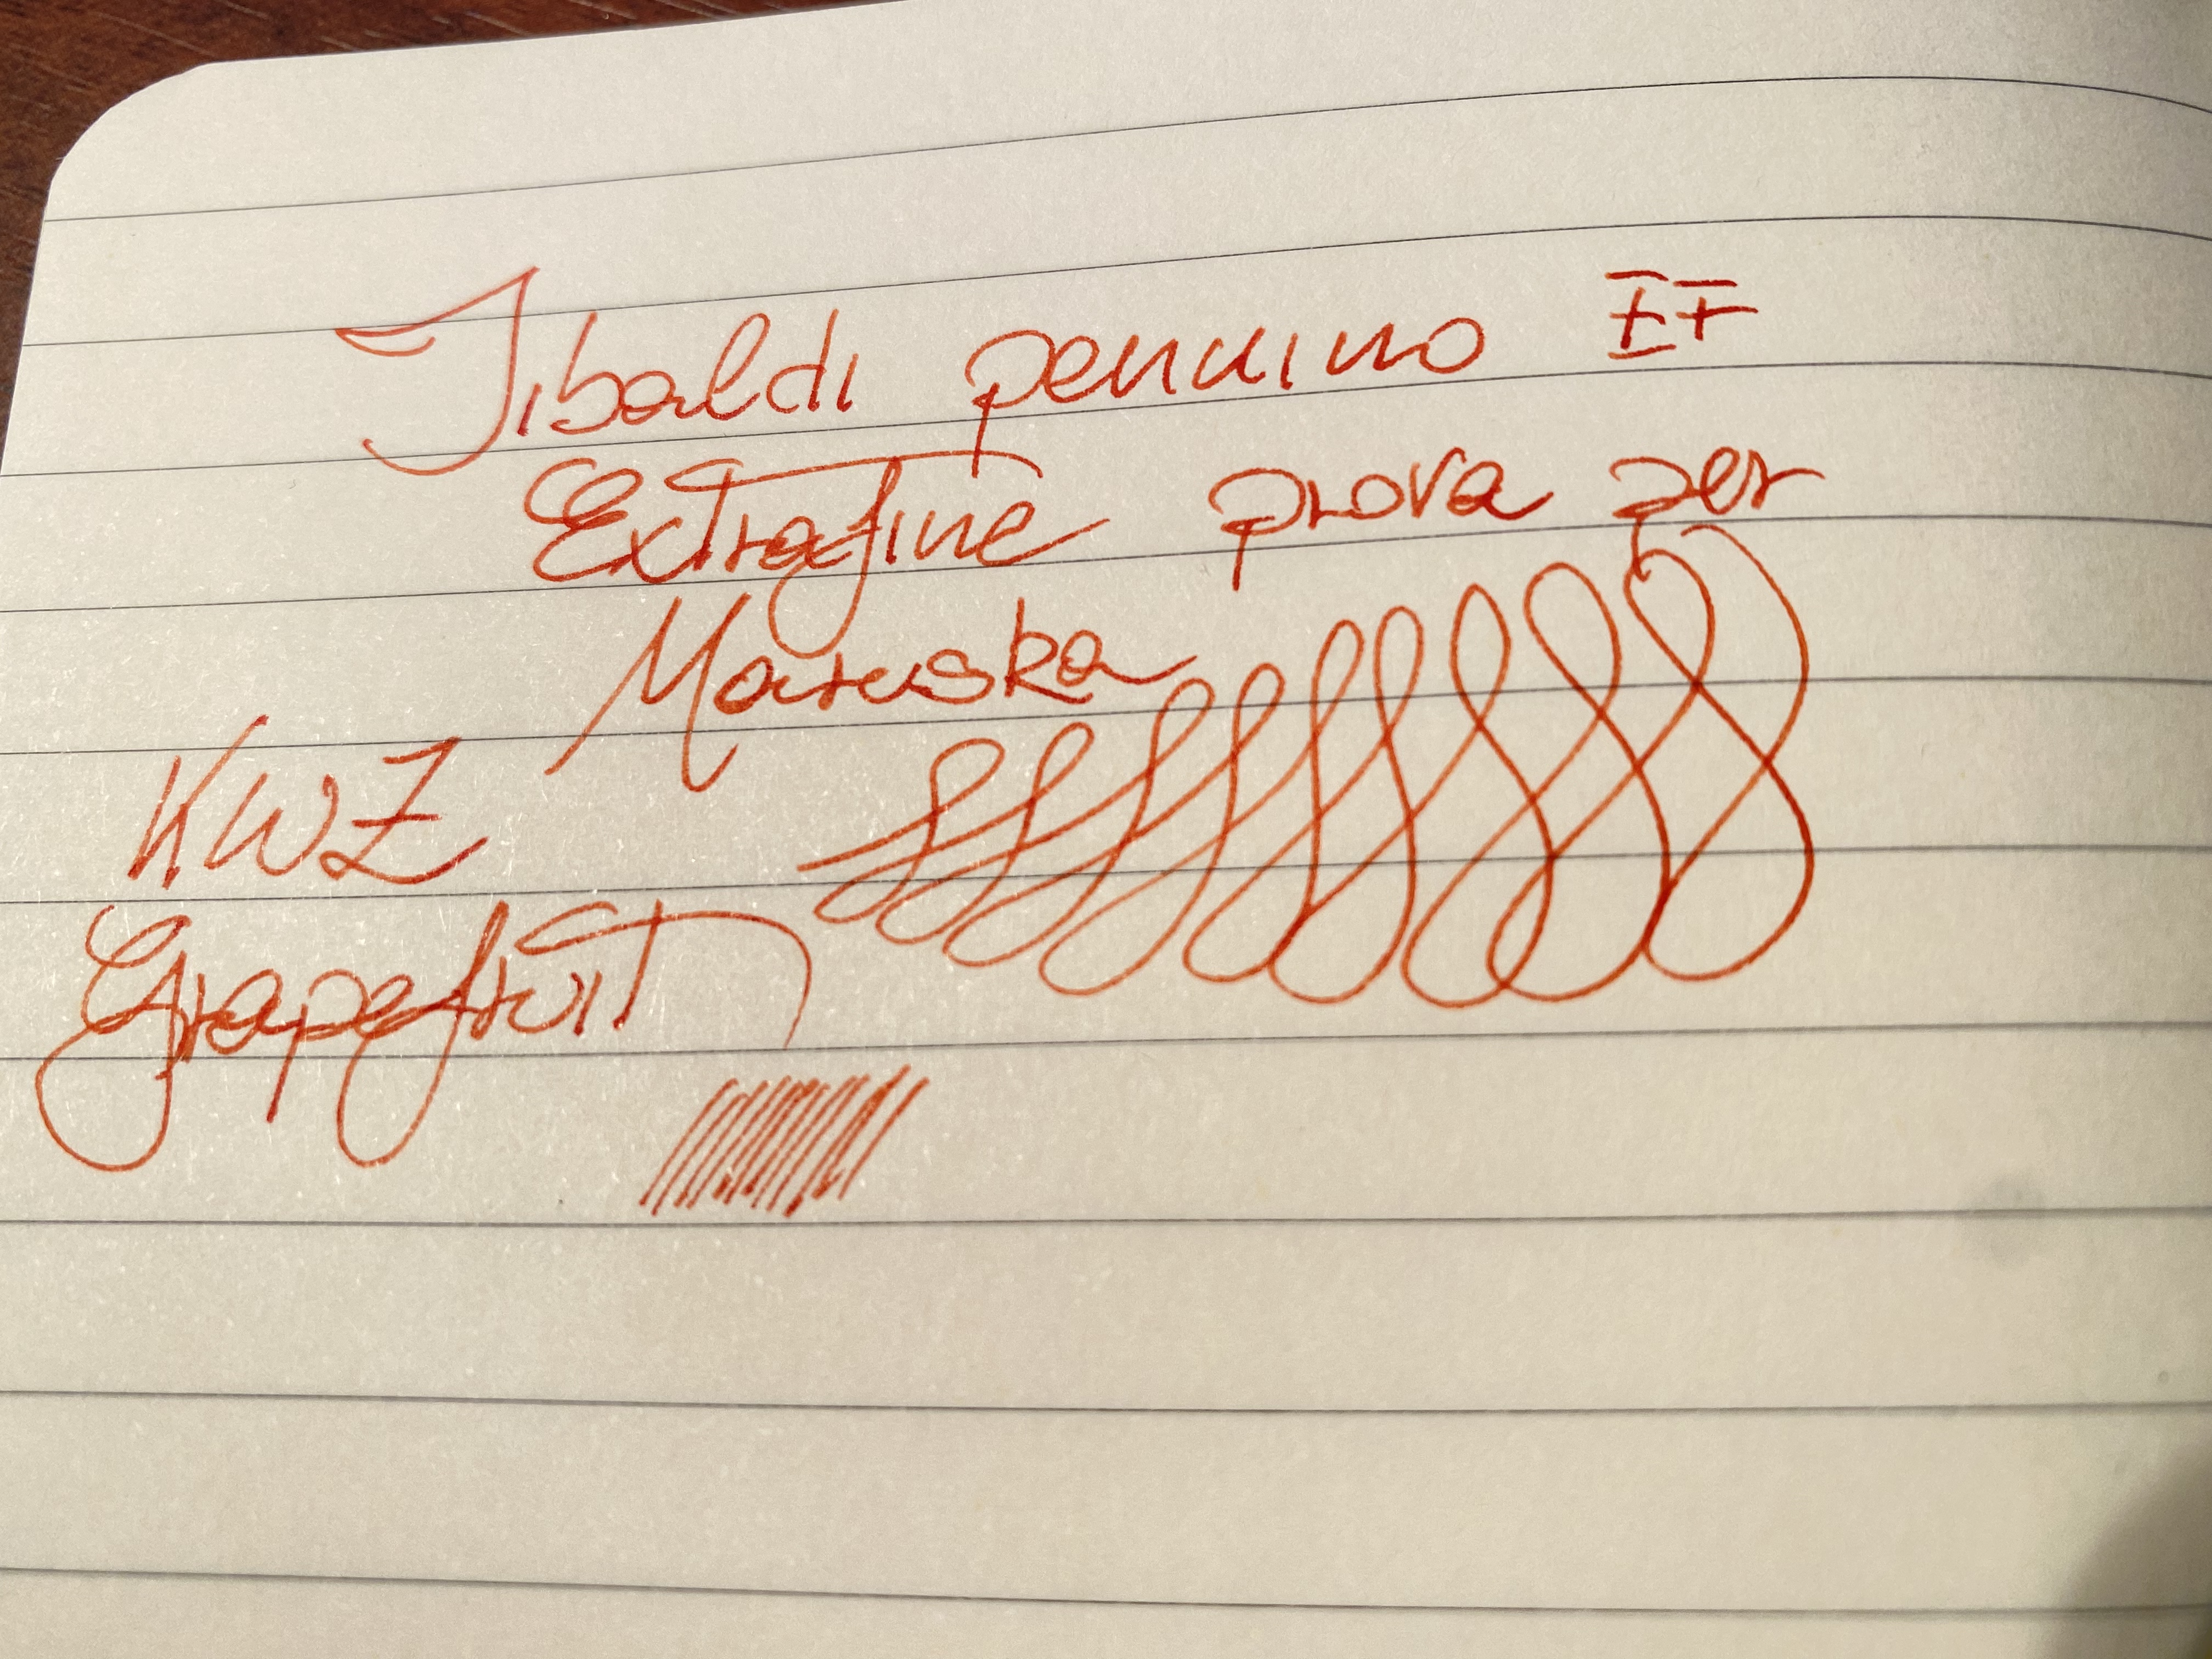 Tibaldi pennino EF
Extrafine prova per
Maruska
KWZ
Grapefruit